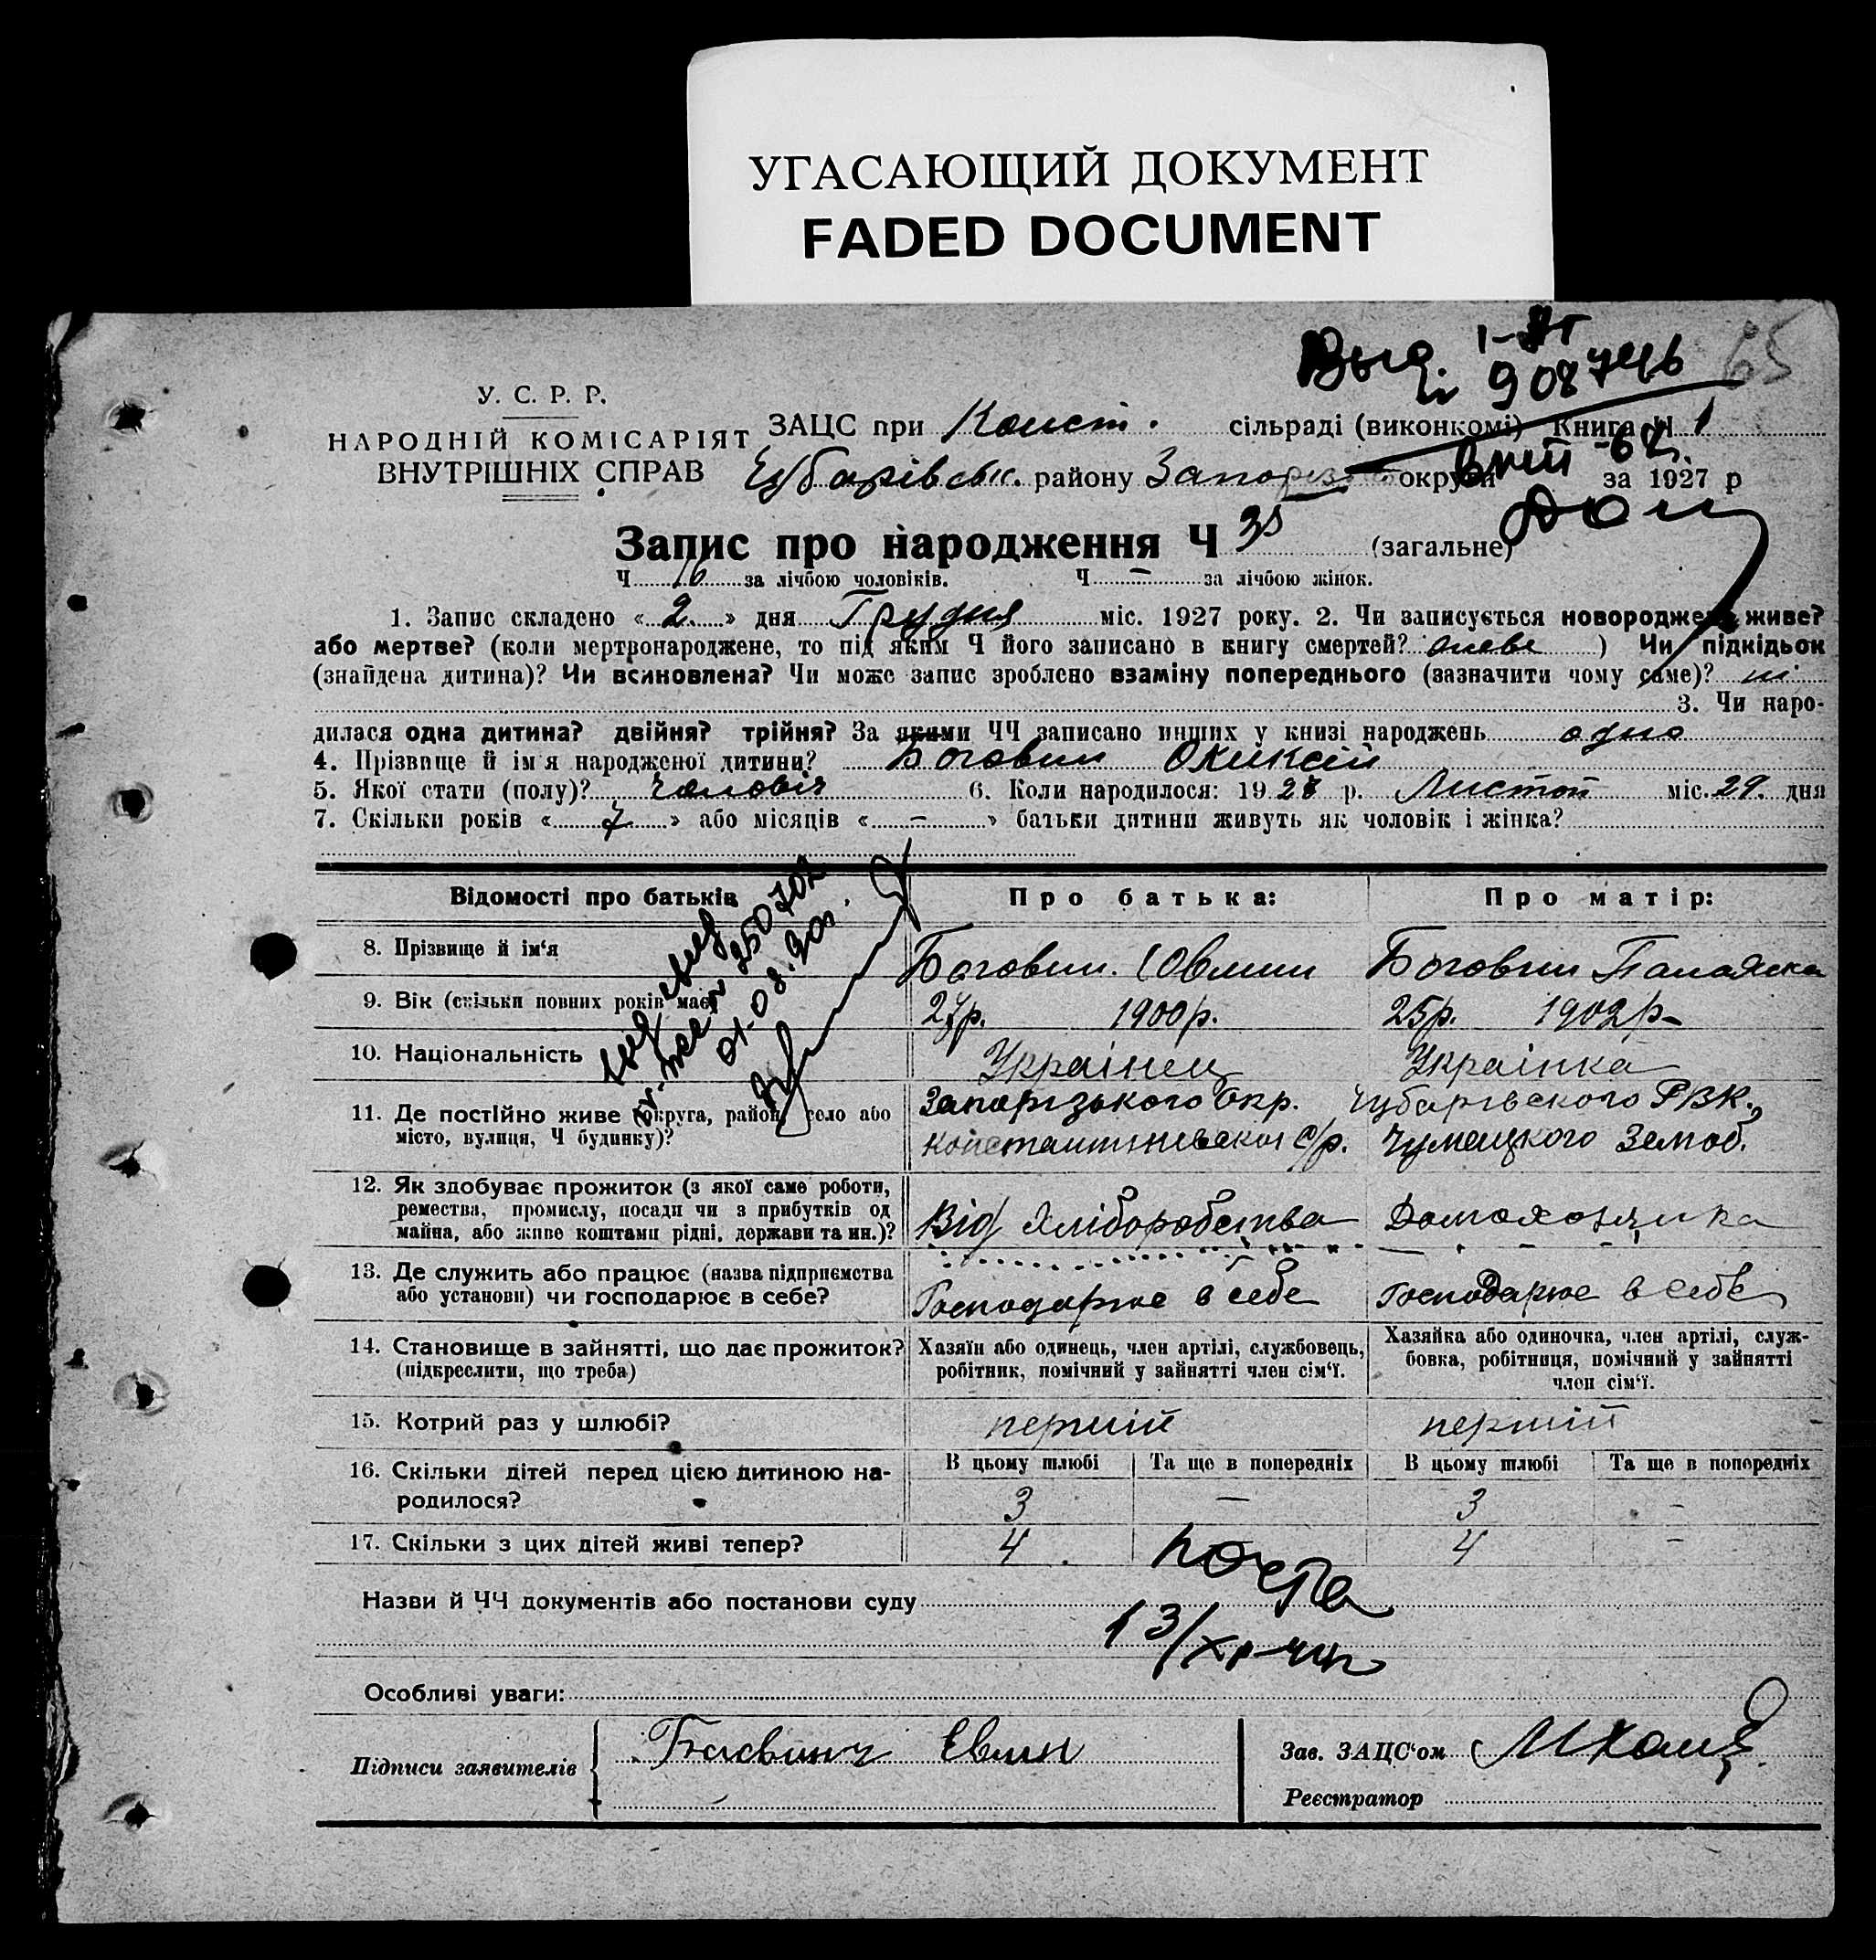 УГАСАЮЩИЙ ДОКУМЕНТ
FADED DOCUMENT
65
У. С. Р. Р.
НАРОДНІЙ КОМІСАРІЯТ
ВНУТРІШНІХ СПРАВ
ЗАЦС при Конст. сільраді (виконкомі) Книга Ч 1
району округи за 1927 р
Запис про народження Ч (загальне)
Ч 16 за лічбою чоловіків. Ч — за лічбою жінок.
1. Запис складено « 2 » дня Грудня міс. 1927 року. 2. Чи записується новороджене живе?
або мертве? (коли мертвонароджене, то під яким Ч його записано в книгу смертей? живе ) Чи підкідьок
(знайдена дитина)? Чи всиновлена? Чи може запис зроблено взаміну попереднього (зазначити чому саме)? ні
3. Чи наро-
дилася одна дитина? двійня? трійня? За якими ЧЧ записано инших у книзі народжень одно
4. Прізвище й ім'я народженої дитини? Боговин
5. Якої стати (полу)? Чоловіч 6. Коли народилося: 1927 р. Листоп міс. 29. дня
7. Скільки років « 7 » або місяців « — » батьки дитини живуть як чоловік і жінка?
Відомості про батьків Про батька: Про матір:
8. Прізвище й ім'я Боговин Боговин
9. Вік (скільки повних років має) 27р. 1900р. 25р. 1902р
10. Національність Українец Українка
11. Де постійно живе (округа, район, село або Запорізького Окр. Чубарівского РВК.,
місто, вулиця, Ч будинку)? Константинівскої С/р. Чумацкого Земоб.
12. Як здобуває прожиток (з якої саме роботи,
ремества, промислу, посади чи з прибутків од
майна, або живе коштами рідні, держави та ин.)? Від Хліборобства Домохозяика
13. Де служить або працює (назва підприємства
або установи) чи господарює в себе? Господарює в себе Господарює в себе
14. Становище в зайнятті, що дає прожиток?
(підкреслити, що треба)
Хазяїн або одинець, член артілі, службовець,
робітник, помічний у зайнятті член сім'ї.
Хазяйка або одиночка, член артілі, служ-
бовка, робітниця, помічний у зайнятті
член сім'ї.
15. Котрий раз у шлюбі? перший перший
16. Скільки дітей перед цією дитиною на-
родилося?
В цьому шлюбі Та ще в попередніх В цьому шлюбі Та ще в попередніх
3 — 3 -
17. Скільки з цих дітей живі тепер? 4 4 -
Назви й ЧЧ документів або постанови суду
Особливі уваги:
Підписи заявителів
Зав. ЗАЦС'ом
Реєстратор